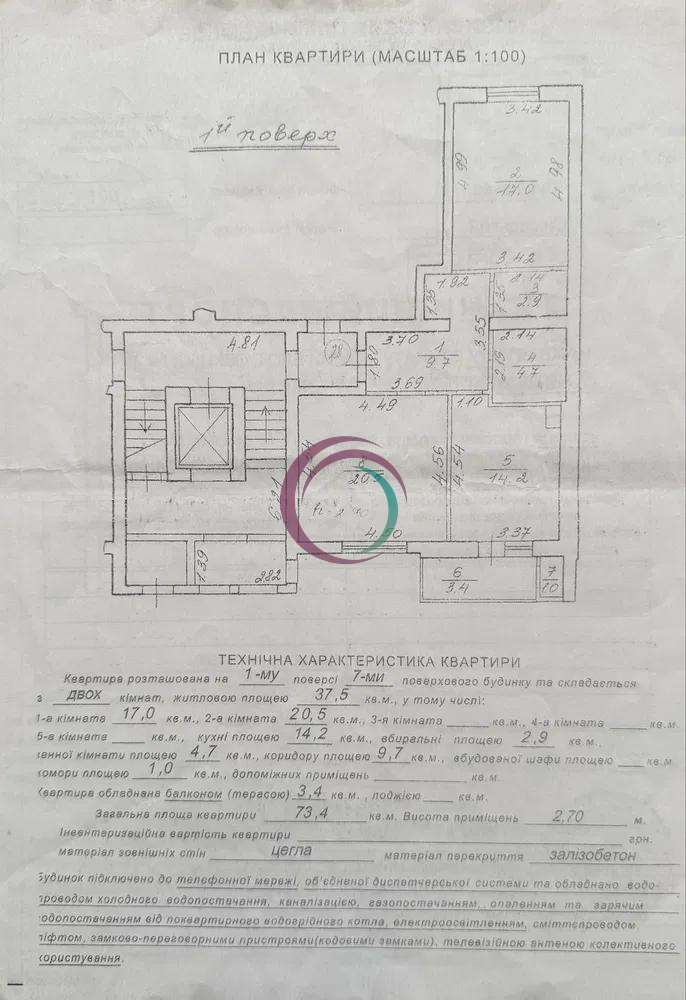 ПЛАН КВАРТИРИ (МАСШТАБ 1:100)
1ий поверх
3.42
4.99
2
17.0
4.98
3.42
1.92
2.14
3
2.9
1.35
1.35
4.81
28
1.80
3.70
1
9.7
3.55
2.14
4
4.7
2.19
3.69
4.49
1.10
4.56
4.54
5
14.2
8
20.5
6.21
4.50
3.37
1.39
2.82
6
3.4
7
1.0
ТЕХНІЧНА ХАРАКТЕРИСТИКА КВАРТИРИ
Квартира розташована на 1-му поверсі 7-ми поверхового будинку та складається
з ДВОХ кімнат, житловою площею 37,5 кв.м., у тому числі:
1-а кімната 17,0 кв.м., 2-а кімната 20,5 кв.м., 3-я кімната кв.м., 4-а кімната кв.м.
5-а кімната кв.м., кухні площею 14,2 кв.м., вбиральні площею 2,9 кв.м.,
ванної кімнати площею 4,7 кв.м., коридору площею 9,7 кв.м., вбудованої шафи площею кв.м
комори площею 1,0 кв.м., допоміжних приміщень кв.м.
Квартира обладнана балконом (терасою) 3,4 кв.м., лоджією кв.м.
Загальна площа квартири 73,4 кв.м. Висота приміщень 2,70 м.
Інвентаризаційна вартість квартири грн.
матеріал зовнішніх стін цегла матеріал перекриття залізобетон
Будинок підключено до телефонної мережі, об'єднаної диспетчерської системи та обладнано водо-
проводом холодного водопостачання, каналізацією, газопостачанням, опаленням та гарячим
водопостачанням від поквартирного водогрійного котла, електроосвітленням, сміттєпроводом
ліфтом, замково-переговорними пристроями(кодовими замками), телевізійною антеною колективного
користування.